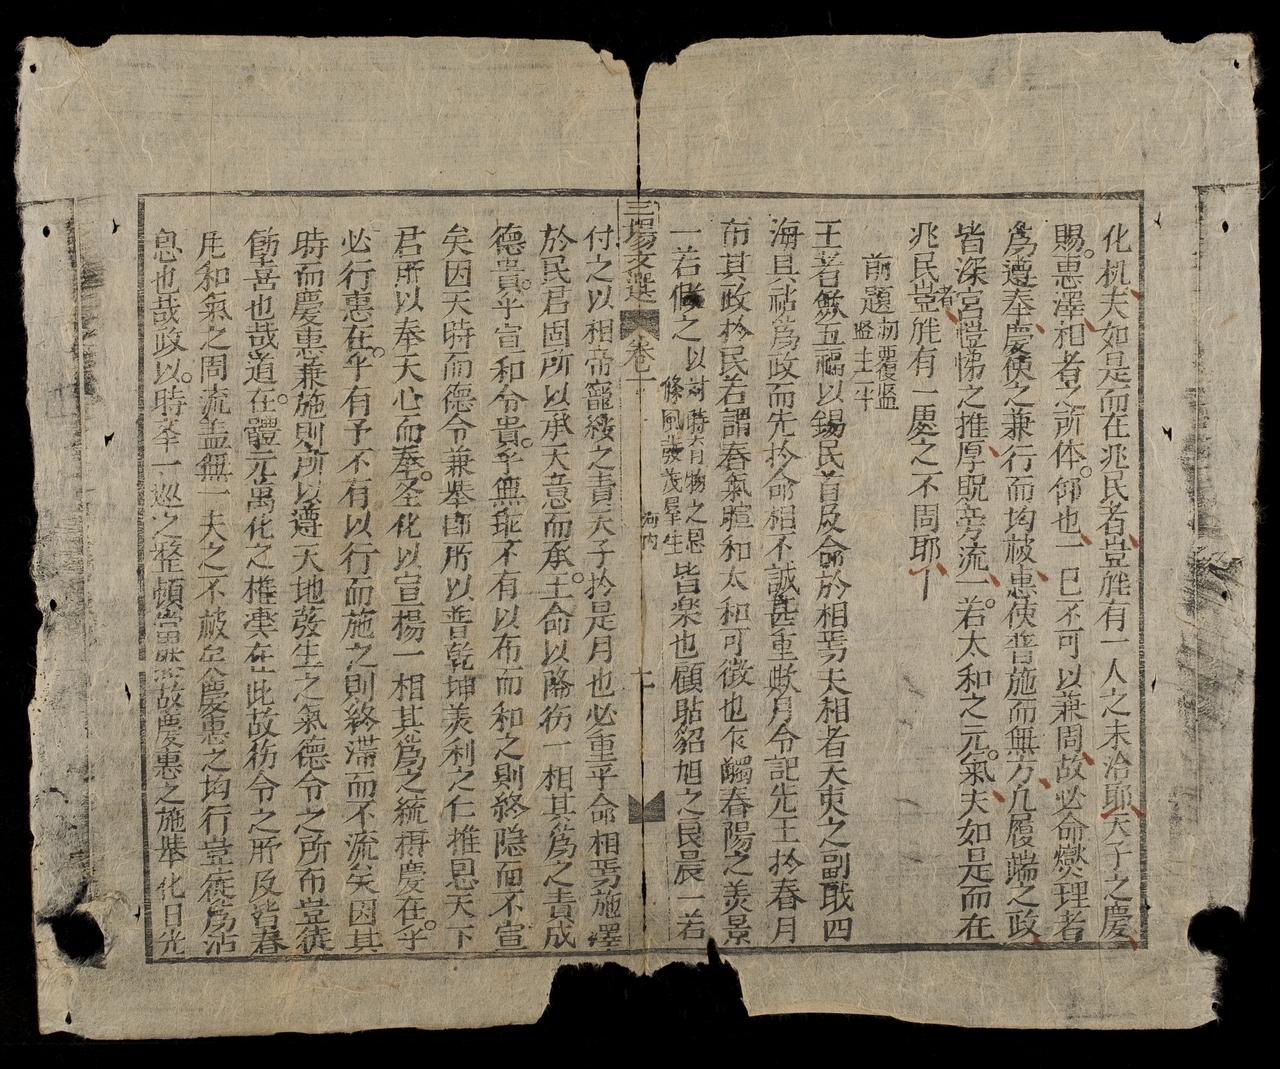 化机夫如是而在兆民者豈能有一人之未洽耶天子之慶
賜惠澤相者之所体仰也一巳不可以兼周故必命燮理者
為遵奉慶使之兼行而均被惠使普施而無方凡履端之政
皆深宮愷悌之推厚貺旁流一若太和之元氣夫如是而在
兆民者豈能有一處之不周耶
前題
王者斂五福以錫民首及命於相焉夫相者天吏之副戢四
海且禧為政而先於命相不誠甚重歟月令記先王於春月
布其政於民若謂春氣暄和太和可徵也乍觸春陽之美景
一若 之以對時育物之恩條風發茂羣生皆楽也顧貽貂旭之良晨一若
三場文選 卷一
付之以相帝寵綏之責天子於是月也必重乎命相焉施澤
於民君固所以承天意而承王命以降衍一相其為之責成
德貴乎宣和令貴乎無乖不有以布而和之則終隐而不宣
矣因天時而德令兼舉即所以普乾坤美利之仁推恩天下
君所以奉天心而奉圣化以宣楊一相其為之統攝慶在乎
必行惠在乎有予不有以行而施之則終滯而不流矣因其
時而慶惠兼施則所以遵天地發生之氣德令之所布豈徒
飾喜也哉道在體元萬化之權輿在此故衍令之所及皆春
凡和氣之周流盖無一夫之不被矣慶惠之均行豈徒為沾
息也哉政以時奉一巡之整頓 故慶惠之施舉化日光